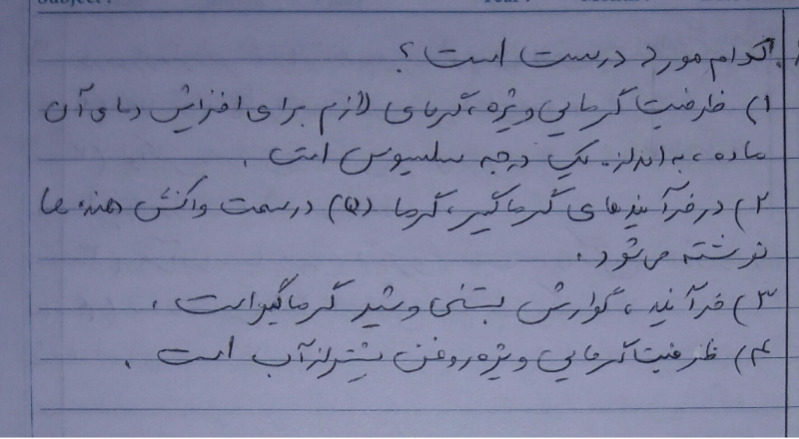 ۱. کدام مورد درست است؟
۱) ظرفیت گرمایی ویژه، گرمای لازم برای افزایش دمای آن
ماده، به اندازه یک درجه سلسیوس است.
۲) در فرآیندهای گرماگیر، گرما (Q) در سمت واکنش دهنده ها
نوشته می شود.
۳) فرآیند، گوارش بستنی و شیر گرماگیر است.
۴) ظرفیت گرمایی ویژه روغن بیشتر از آب است.